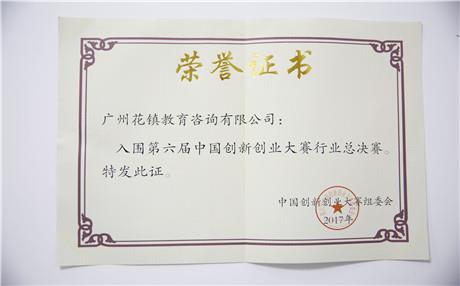 荣誉证书
广州花镇教育咨询有限公司：
入围第六届中国创新创业大赛行业总决赛。
特发此证。
中国创新创业大赛组委会
2017年